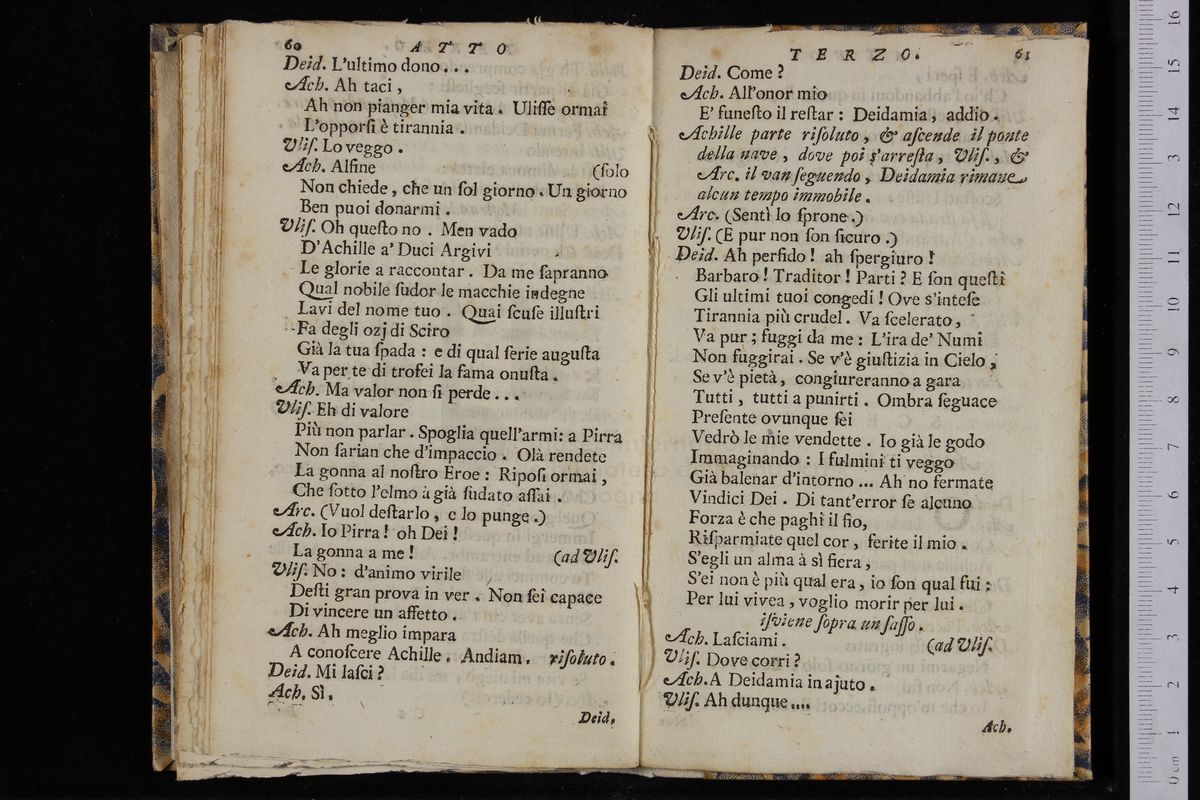 60 ATTO
Deid. L'ultimo dono...
Ach. Ah taci,
Ah non pianger mia vita. Uliſſe ormai
L'opporſi è tirannia.
Uliſ. Lo veggo.
Ach. Alfine (ſolo
Non chiede, che un ſol giorno. Un giorno
Ben puoi donarmi.
Uliſ. Oh queſto no. Men vado
D'Achille a' Duci Argivi
Le glorie a raccontar. Da me ſapranno
Qual nobile ſudor le macchie indegne
Lavi del nome tuo. Quai ſcuſe illuſtri
Fa degli ozj di Sciro
Già la tua ſpada: e di qual ſerie auguſta
Va per te di trofei la fama onuſta.
Ach. Ma valor non ſi perde...
Uliſ. Eh di valore
Più non parlar. Spoglia quell'armi: a Pirra
Non ſarian che d'impaccio. Olà rendete
La gonna al noſtro Eroe: Ripoſi ormai,
Che ſotto l'elmo à già ſudato aſſai.
Arc. (Vuol deſtarlo, e lo punge.)
Ach. Io Pirra! oh Dei!
La gonna a me! (ad Uliſ.
Uliſ. No: d'animo virile
Deſti gran prova in ver. Non ſei capace
Di vincere un affetto.
Ach. Ah meglio impara
A conoſcere Achille. Andiam. riſoluto.
Deid. Mi laſci?
Ach. Sì.
Deid.
TERZO. 61
Deid. Come?
Ach. All'onor mio
E' funeſto il reſtar: Deidamia, addio.
Achille parte riſoluto, & aſcende il ponte
della nave, dove poi s'arreſta, Uliſ., &
Arc. il van ſeguendo, Deidamia rimane
alcun tempo immobile.
Arc. (Sentì lo ſprone.)
Uliſ. (E pur non ſon ſicuro.)
Deid. Ah perfido! ah ſpergiuro!
Barbaro! Traditor! Parti? E ſon queſti
Gli ultimi tuoi congedi! Ove s'inteſe
Tirannia più crudel. Va ſcelerato,
Va pur; fuggi da me: L'ira de' Numi
Non fuggirai. Se v'è giuſtizia in Cielo,
Se v'è pietà, congiureranno a gara
Tutti, tutti a punirti. Ombra ſeguace
Preſente ovunque ſei
Vedrò le mie vendette. Io già le godo
Immaginando: I fulmini ti veggo
Già balenar d'intorno... Ah no fermate
Vindici Dei. Di tant'error ſe alcuno
Forza è che paghi il fio,
Riſparmiate quel cor, ferite il mio.
S'egli un alma à sì fiera,
S'ei non è più qual era, io ſon qual fui:
Per lui vivea, voglio morir per lui.
iſviene ſopra un ſaſſo.
Ach. Laſciami. (ad Uliſ.
Uliſ. Dove corri?
Ach. A Deidamia in ajuto.
Uliſ. Ah dunque....
Ach.
0 cm 1 2 3 4 5 6 7 8 9 10 11 12 13 14 15 16